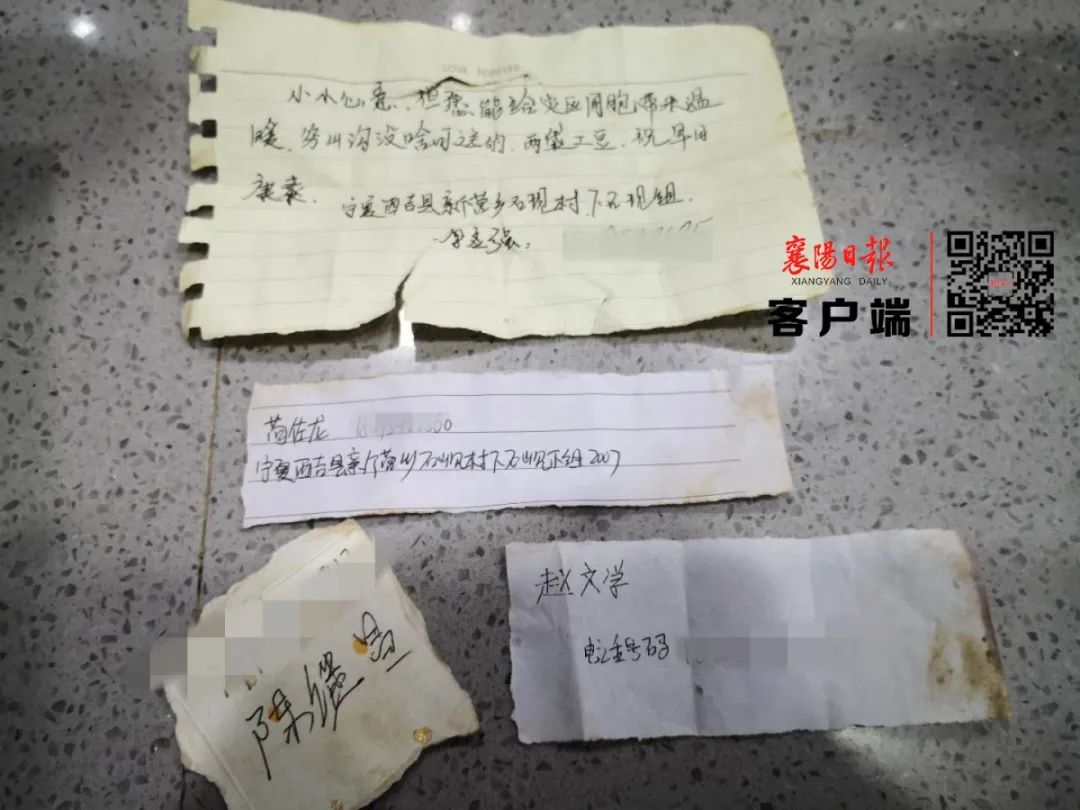 LOVE FOREVER
小小心意,但愿能给灾区同胞带来温
暖,穷山沟没啥可送的,两袋土豆,祝早日
康泰.
宁夏西吉县新营乡石岘村下石岘组.
强.
襄陽日報
XIANGYANG DAILY
客户端
苟佐龙
宁夏西吉县新营乡石岘村下石岘小组2007
赵文学
电话号码
陈